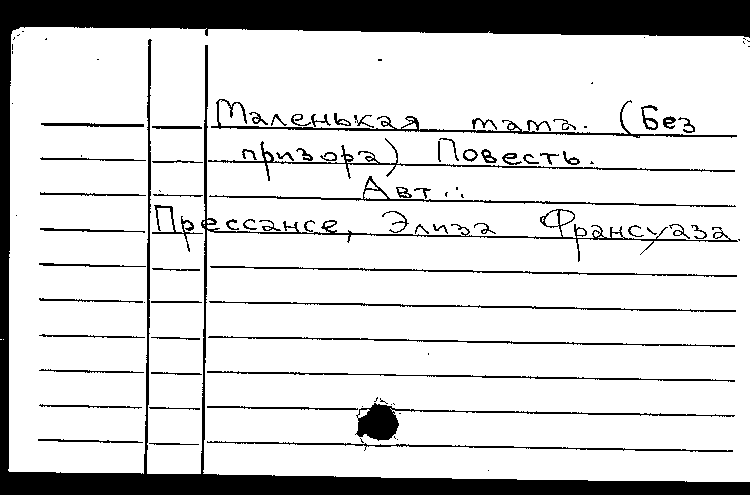 Маленькая мама. (Без
призора) Повесть.
Авт.:
Прессансе, Элиза Франсуаза